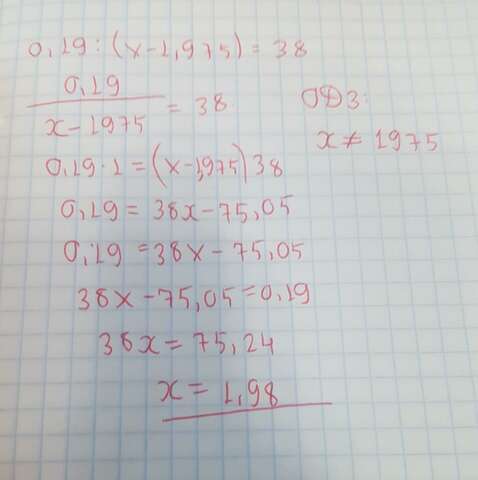 0,19:(x-1,975)=38
0,19
x-1975
=38
ОДЗ:
x≠1975
0,19·1=(x-1,975)38
0,19=38x-75,05
0,19=38x-75,05
38x-75,05=0,19
38x=75,24
x=1,98